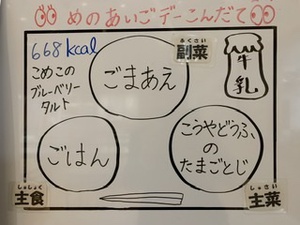 めのあいごデーこんだて
668kcal
こめこの
ブルーベリー
タルト
ごまあえ
ふくさい
副菜
牛乳
ごはん
こうやどうふ
の
たまごとじ
しゅしょく
主食
しゅさい
主菜